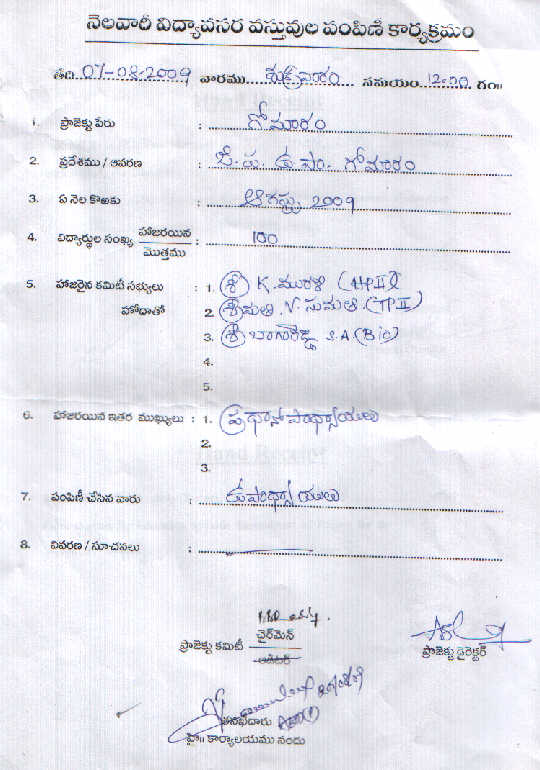 నెలవారీ విద్యావసర వస్తువుల పంపిణీ కార్యక్రమం
తేది 07-08-2009 వారము శుక్రవారం సమయం 12-00 గం॥
1. ప్రాజెక్టు పేరు : గోమారం
2. ప్రదేశము / ఆవరణ : జి. ప. ఉ. పా. గోమారం
3. ఏ నెల కొఱకు : ఆగస్టు 2009
4. విద్యార్థుల సంఖ్య హాజరయిన / మొత్తము : 100
5. హాజరైన కమిటీ సభ్యులు హోదాతో : 1. శ్రీ K. మురళి (HP II)
2. శ్రీమతి. V. సుమతి (TP II)
3. శ్రీ బాగారెడ్డి S.A (Bio)
4.
5.
6. హాజరయిన ఇతర ముఖ్యులు : 1. ప్రధానోపాధ్యాయులు
2.
3.
7. పంపిణీ చేసిన వారు : ఉపాధ్యాయులు
8. వివరణ / సూచనలు :
ప్రాజెక్టు కమిటీ చైర్‌మెన్
ప్రాజెక్టు డైరెక్టర్
కార్యాలయము నందు